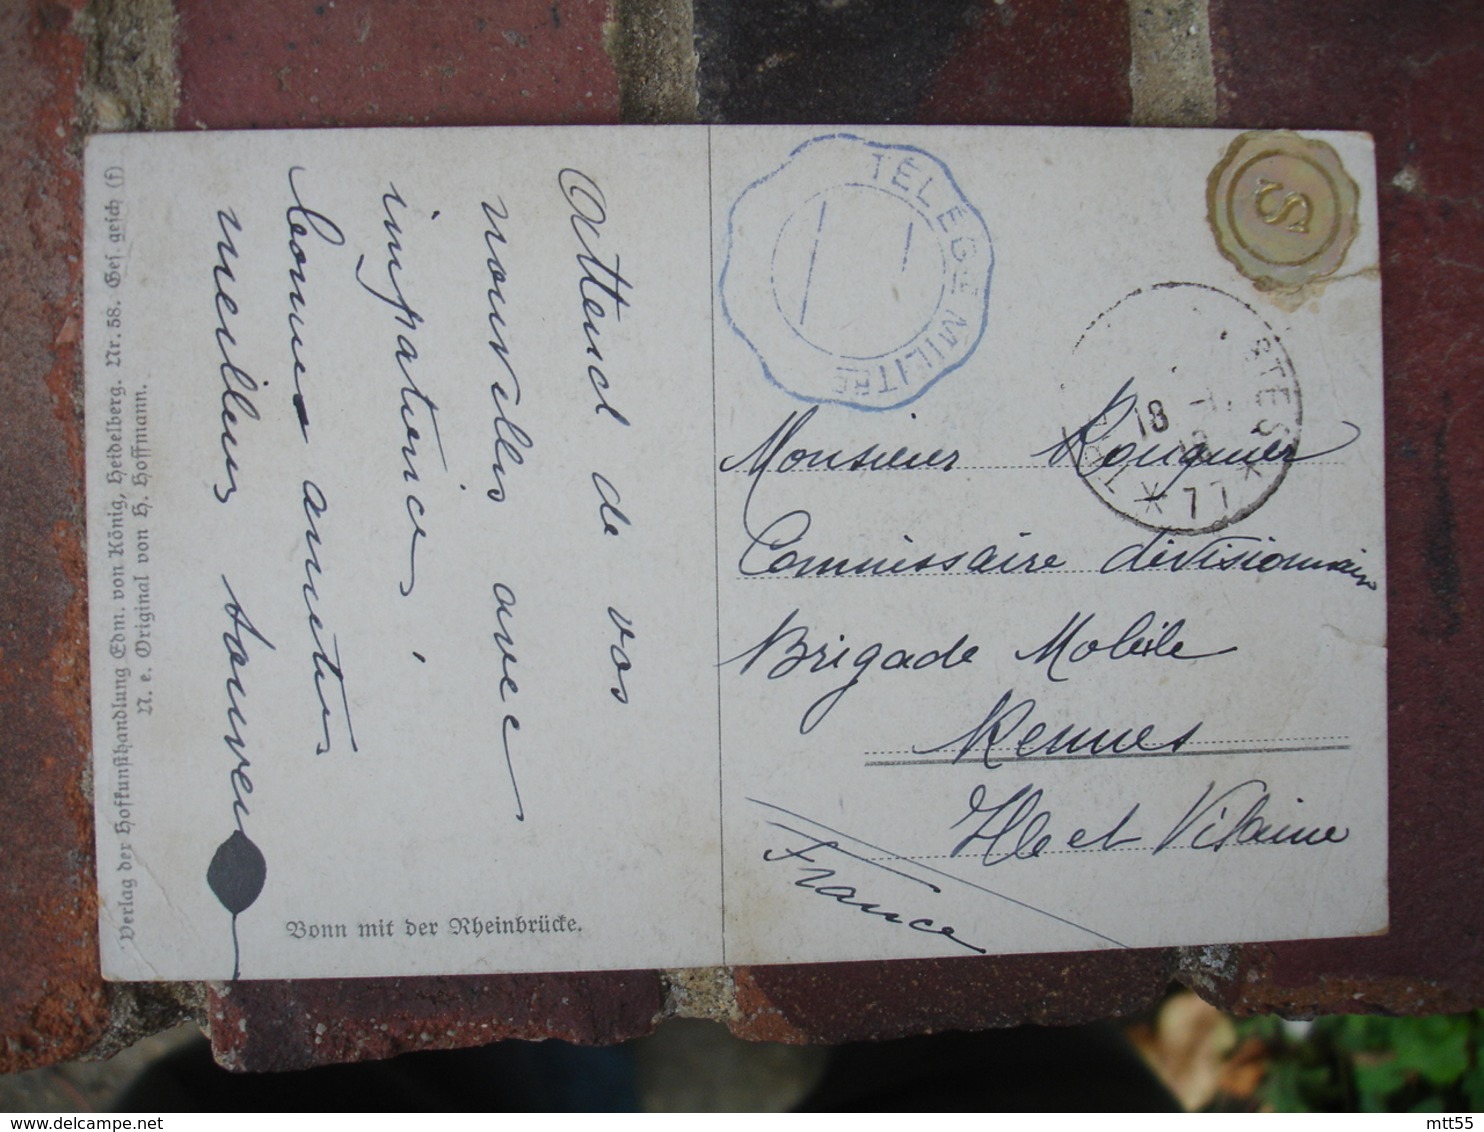 Attend de vos
nouvelles avec
impatience,
bonnes amitiés
meilleurs souvenirs
Bonn mit der Rheinbrücke.
Verlag der Hofkunsthandlung Edm. von König, Heidelberg. Nr. 58. Ges. gesch (f)
N. e. Original von H. Hoffmann.
TÉLÉGIE MILITRE
S
STES * 77 *
18
Monsieur Rouquier
Commissaire divisionnaire
Brigade Mobile
Rennes
Ille et Vilaine
France
mtt55